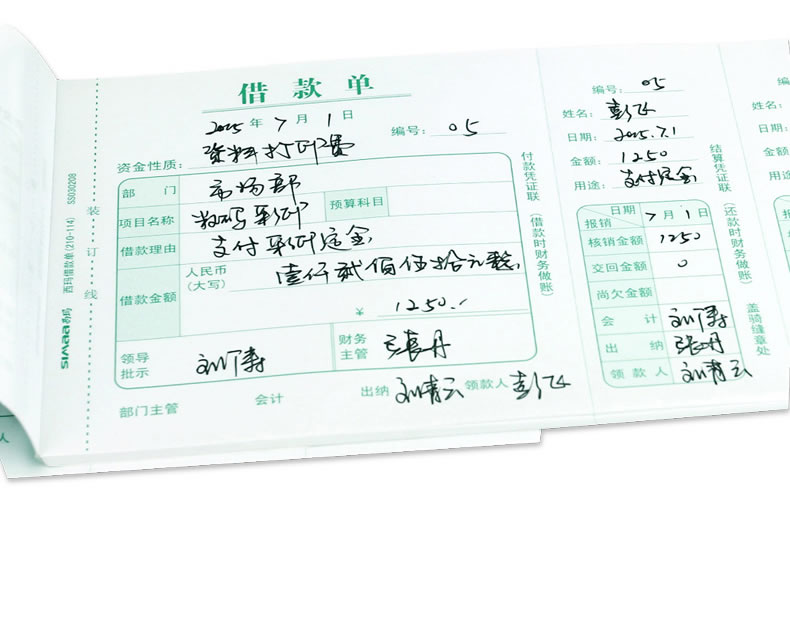 借款单
2025年7月1日 编号：05
资金性质：资料打印费
部门 市场部
项目名称 数码彩印 预算科目
借款理由 支付彩印定金
借款金额 人民币(大写) 壹仟贰佰伍拾元整
¥ 1250.-
领导批示 刘伟涛 财务主管 张丹
部门主管 会计 出纳 刘青云 领款人 彭飞
付款凭证联（借款时财务做账）
装订线
西玛借款单(210-114) SS030208
SIMAA 西玛
编号：05
姓名：彭飞
日期：2025.7.1
金额：1250
用途：支付定金
日期 7月1日
报销
核销金额 1250
交回金额 0
尚欠金额
会计 刘伟涛
出纳 张丹
领款人 刘青云
结算凭证联（还款时财务做账）
盖骑缝章处
编
姓名：
日期：
金额：
用途：
人